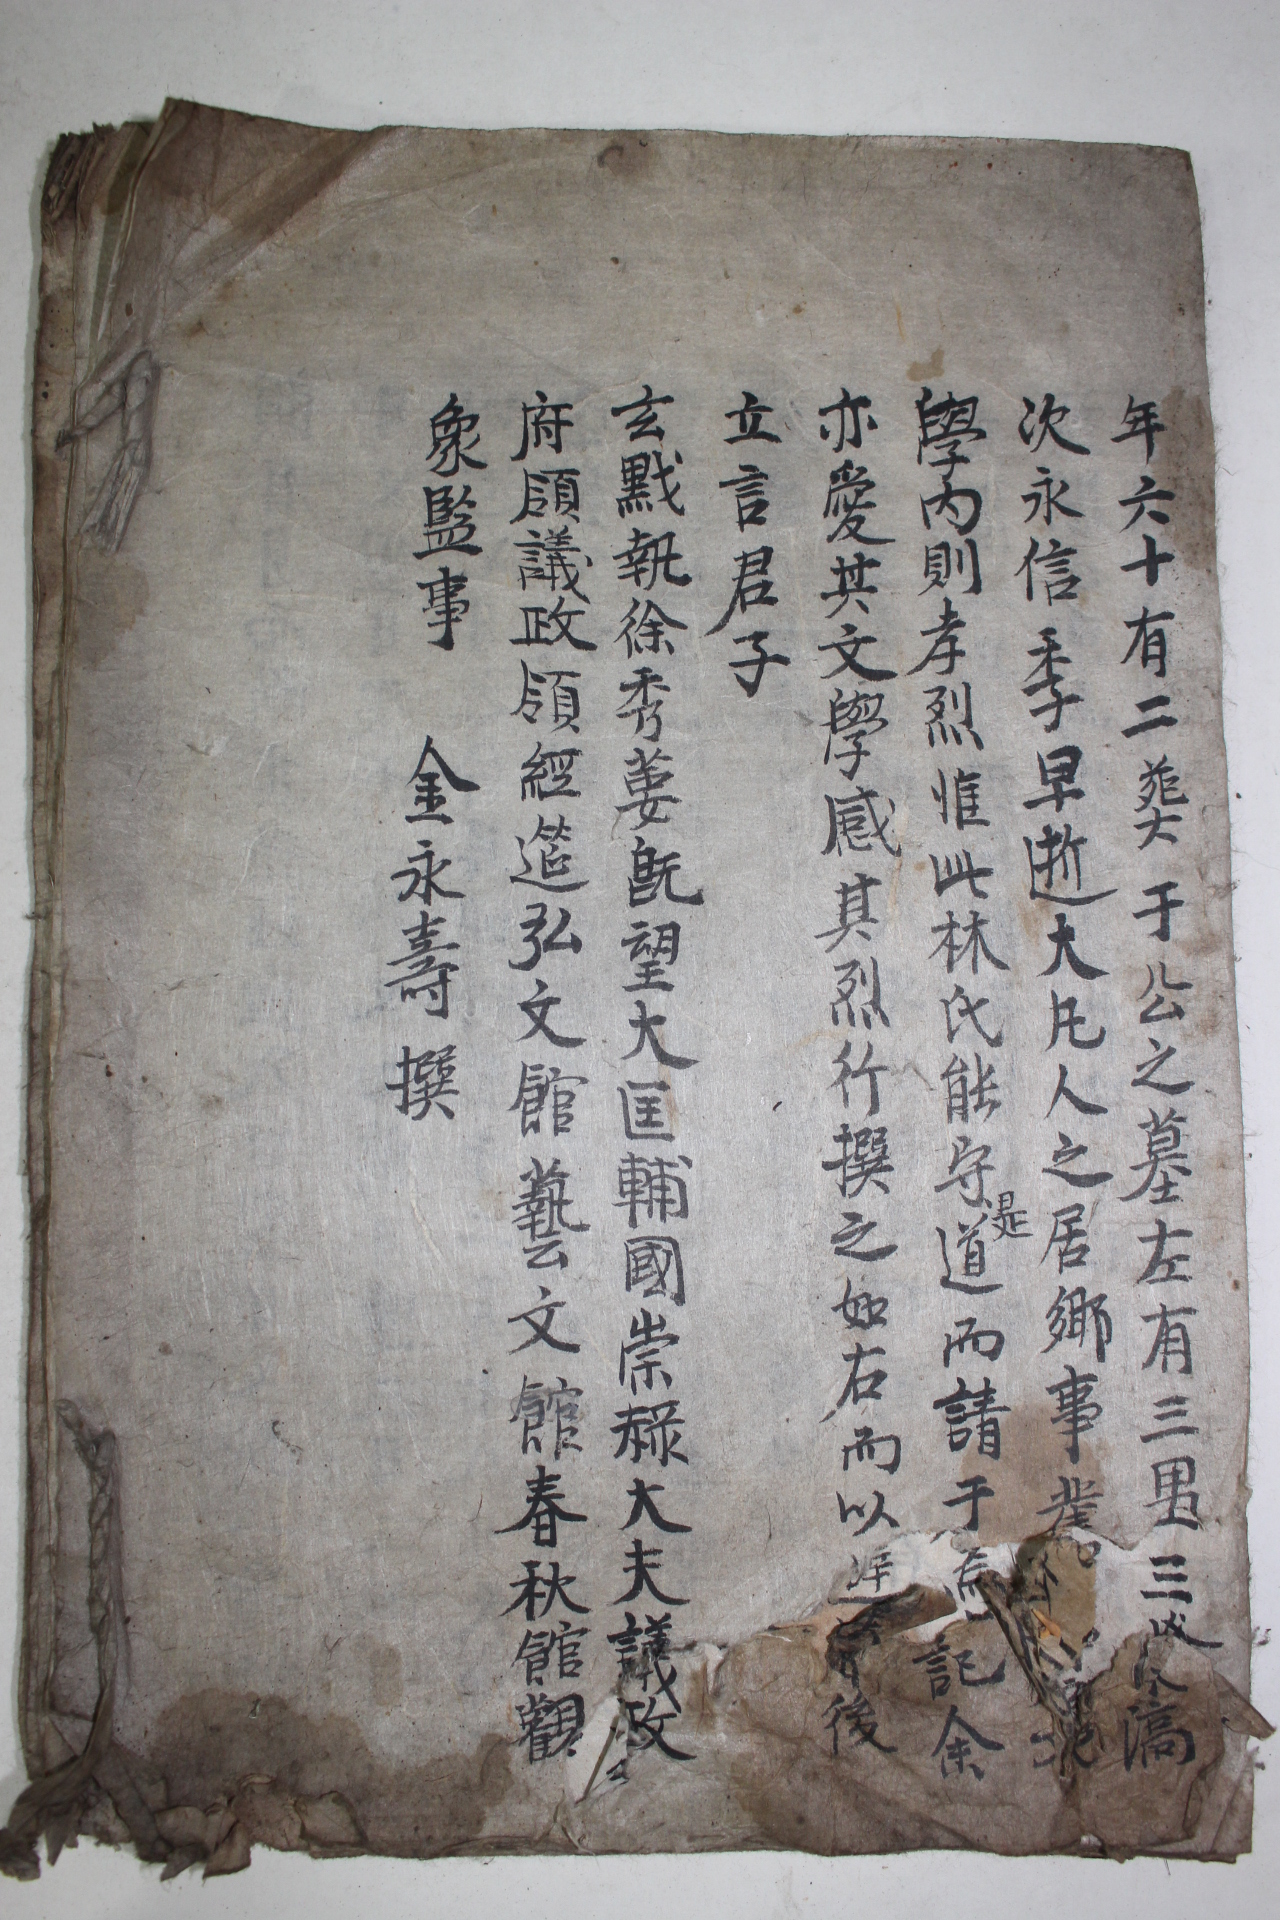 年六十有二葬于公之墓左有三男三 滈
次永信季早逝大凡人之居鄉事業
學內則孝烈惟此林氏能守是道而請于 記余
亦愛其文學感其烈行撰之如右而以 後
立言君子
玄黓執徐秀葽旣望大匡輔國崇祿大夫議政
府領議政領經筵弘文館藝文館春秋館觀
象監事 金永壽 撰